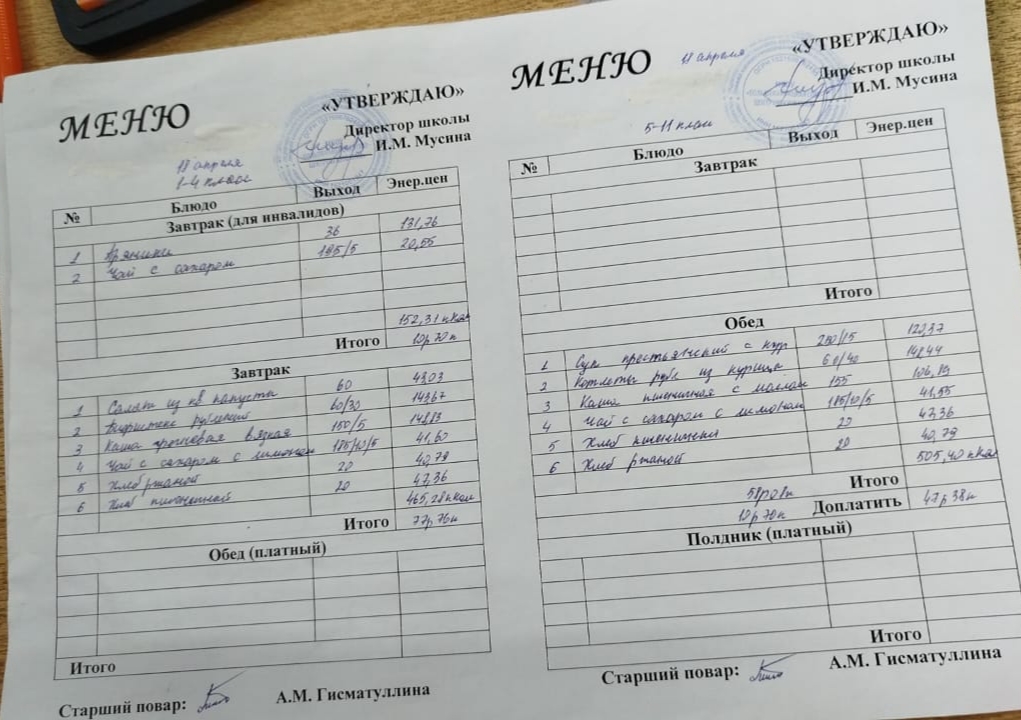 МЕНЮ
«УТВЕРЖДАЮ»
Директор школы
И.М. Мусина
апреля
1-4 класс
№ Блюдо Выход Энер.цен
Завтрак (для инвалидов)
1 Пряники 36 131,76
2 Чай с сахаром 195/5 20,55
152,31 ккал
Итого 10р 70к
Завтрак
1 Салат из кв капусты 60 43,03
2 Бифштекс рубленый 60/30 143,67
3 Каша гречневая вязкая 150/5 148,83
4 Чай с сахаром с лимоном 185/10/5 41,60
5 Хлеб ржаной 20 40,79
6 Хлеб пшеничный 20 47,36
465,28 ккал
Итого 77р 76к
Обед (платный)
Итого
Старший повар: А.М. Гисматуллина
МЕНЮ
апреля
«УТВЕРЖДАЮ»
Директор школы
И.М. Мусина
5-11 класс
№ Блюдо Выход Энер.цен
Завтрак
Итого
Обед
1 Суп крестьянский с кур 250/15
2 Котлеты руб из курицы 60/40
3 Каша пшеничная с маслом 155 106,19
4 Чай с сахаром с лимоном 185/10/5 41,55
5 Хлеб пшеничный 20 47,36
6 Хлеб ржаной 20 40,79
505,40 ккал
Итого
58р08к
10р 70к Доплатить 47р 38к
Полдник (платный)
Итого
Старший повар: А.М. Гисматуллина